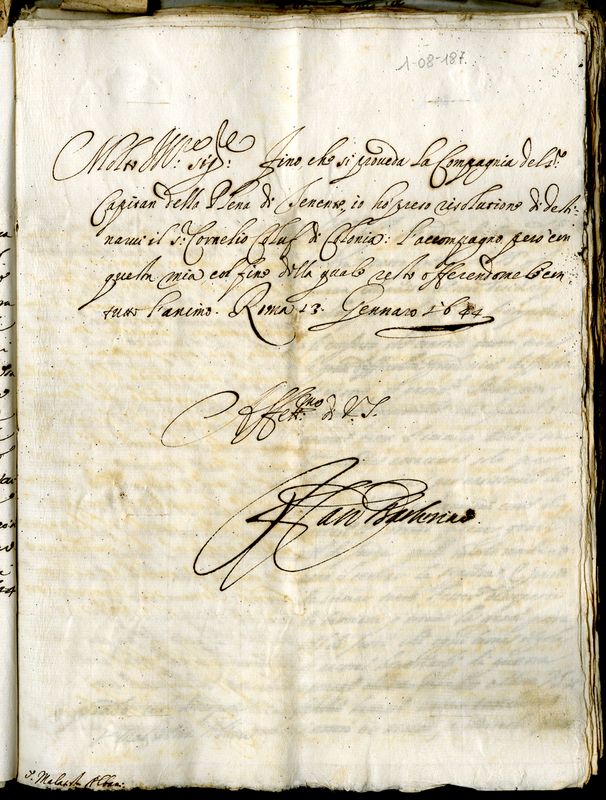 1-08-187.
Molto Ill.re Sig.re Fino, che si proveda la Compagnia del S.r
Capitan della Plena di Tenente, io ho preso risolutione di desti-
narui il S.r Cornelio di Colonia: l'accompagno però con
questa mia col fine della quale resto offerendomele con
tutto l'animo. Roma 13. Gennaro 1644
Aff.mo di V.S.
Barberino
S. Malatesta Albani